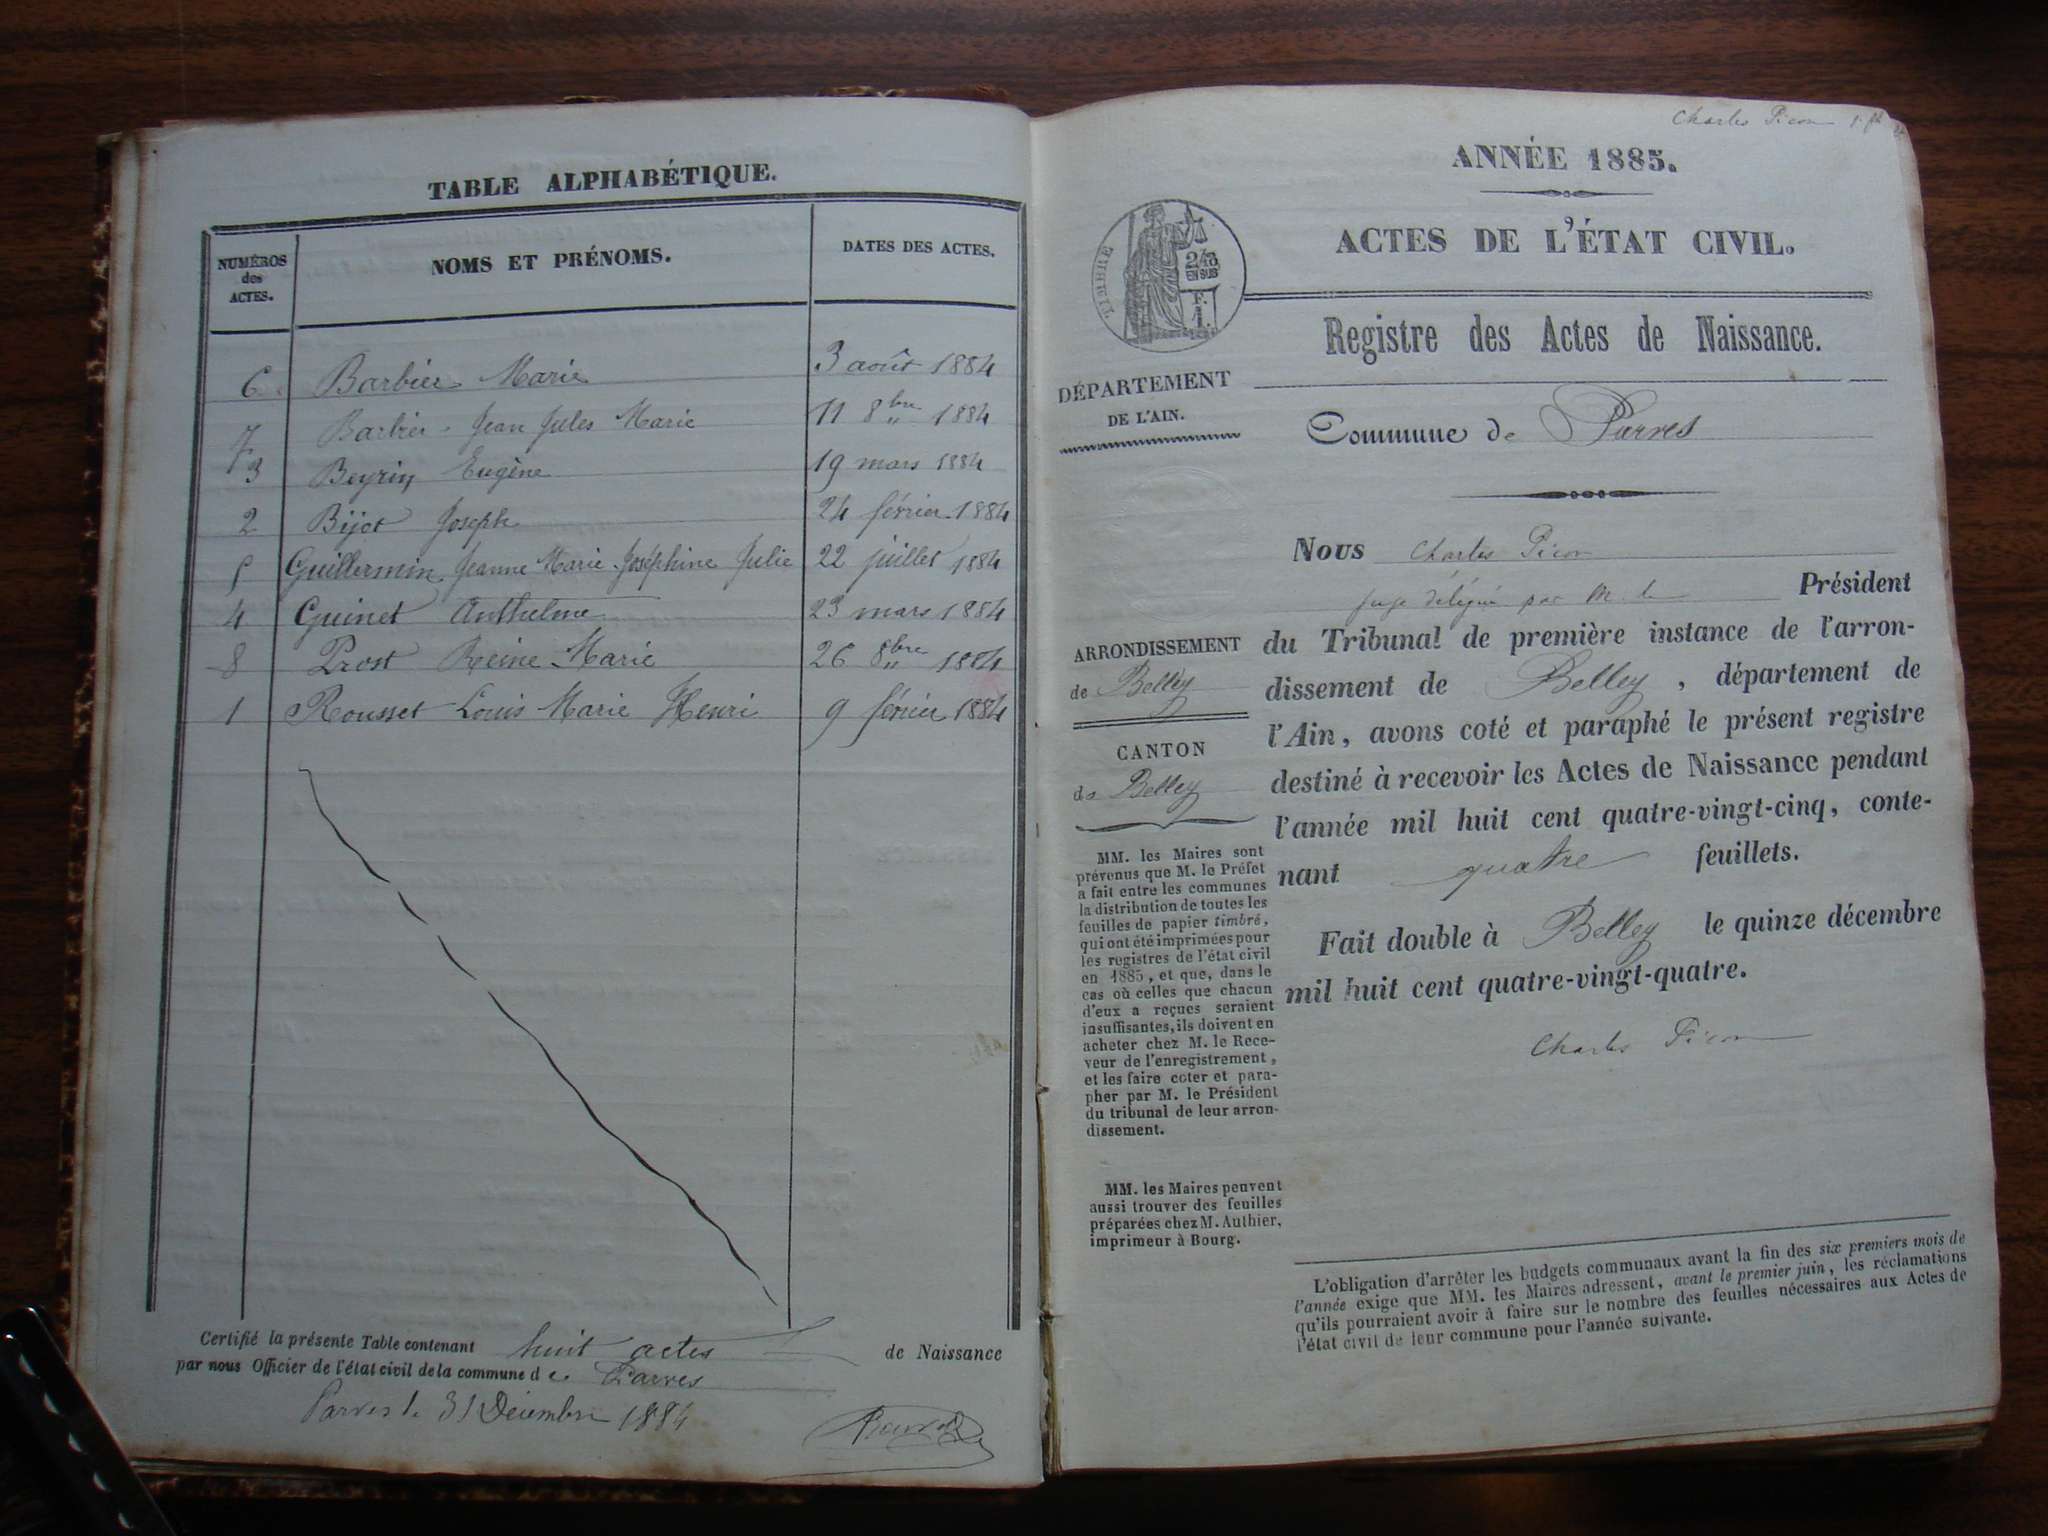 TABLE ALPHABÉTIQUE.
NUMÉROS
des
ACTES.
NOMS ET PRÉNOMS.
DATES DES ACTES.
6 Barbier Marie 3 août 1884
7 Barbier Jean Jules Marie 11 8bre 1884
3 Beyrin Eugène 19 mars 1884
2 Bijot Joseph 24 février 1884
5 Guillermin Jeanne Marie Joséphine Julie 22 juillet 1884
4 Guinet Anthelme 23 mars 1884
8 Prost Reine Marie 26 8bre 1884
1 Rousset Louis Marie Henri 9 février 1884
Certifié la présente Table contenant huit actes de Naissance
par nous Officier de l'état civil de la commune de Parves
Parves le 31 Décembre 1884
Charles Picon
ANNÉE 1885.
ACTES DE L'ÉTAT CIVIL.
TIMBRE
2/10
EN SUS
F.
1.
Registre des Actes de Naissance.
DÉPARTEMENT
DE L'AIN.
Commune de Parves
Nous Charles Picon
juge délégué par M. le Président
du Tribunal de première instance de l'arron-
dissement de Belley, département de
l'Ain, avons coté et paraphé le présent registre
destiné à recevoir les Actes de Naissance pendant
l'année mil huit cent quatre-vingt-cinq, conte-
nant quatre feuillets.
Fait double à Belley le quinze décembre
mil huit cent quatre-vingt-quatre.
Charles Picon
ARRONDISSEMENT
de Belley
CANTON
de Belley
MM. les Maires sont
prévenus que M. le Préfet
a fait entre les communes
la distribution de toutes les
feuilles de papier timbré,
qui ont été imprimées pour
les registres de l'état civil
en 1885, et que, dans le
cas où celles que chacun
d'eux a reçues seraient
insuffisantes, ils doivent en
acheter chez M. le Rece-
veur de l'enregistrement,
et les faire coter et para-
pher par M. le Président
du tribunal de leur arron-
dissement.
MM. les Maires peuvent
aussi trouver des feuilles
préparées chez M. Authier,
imprimeur à Bourg.
L'obligation d'arrêter les budgets communaux avant la fin des six premiers mois de
l'année exige que MM. les Maires adressent, avant le premier juin, les réclamations
qu'ils pourraient avoir à faire sur le nombre des feuilles nécessaires aux Actes de
l'état civil de leur commune pour l'année suivante.